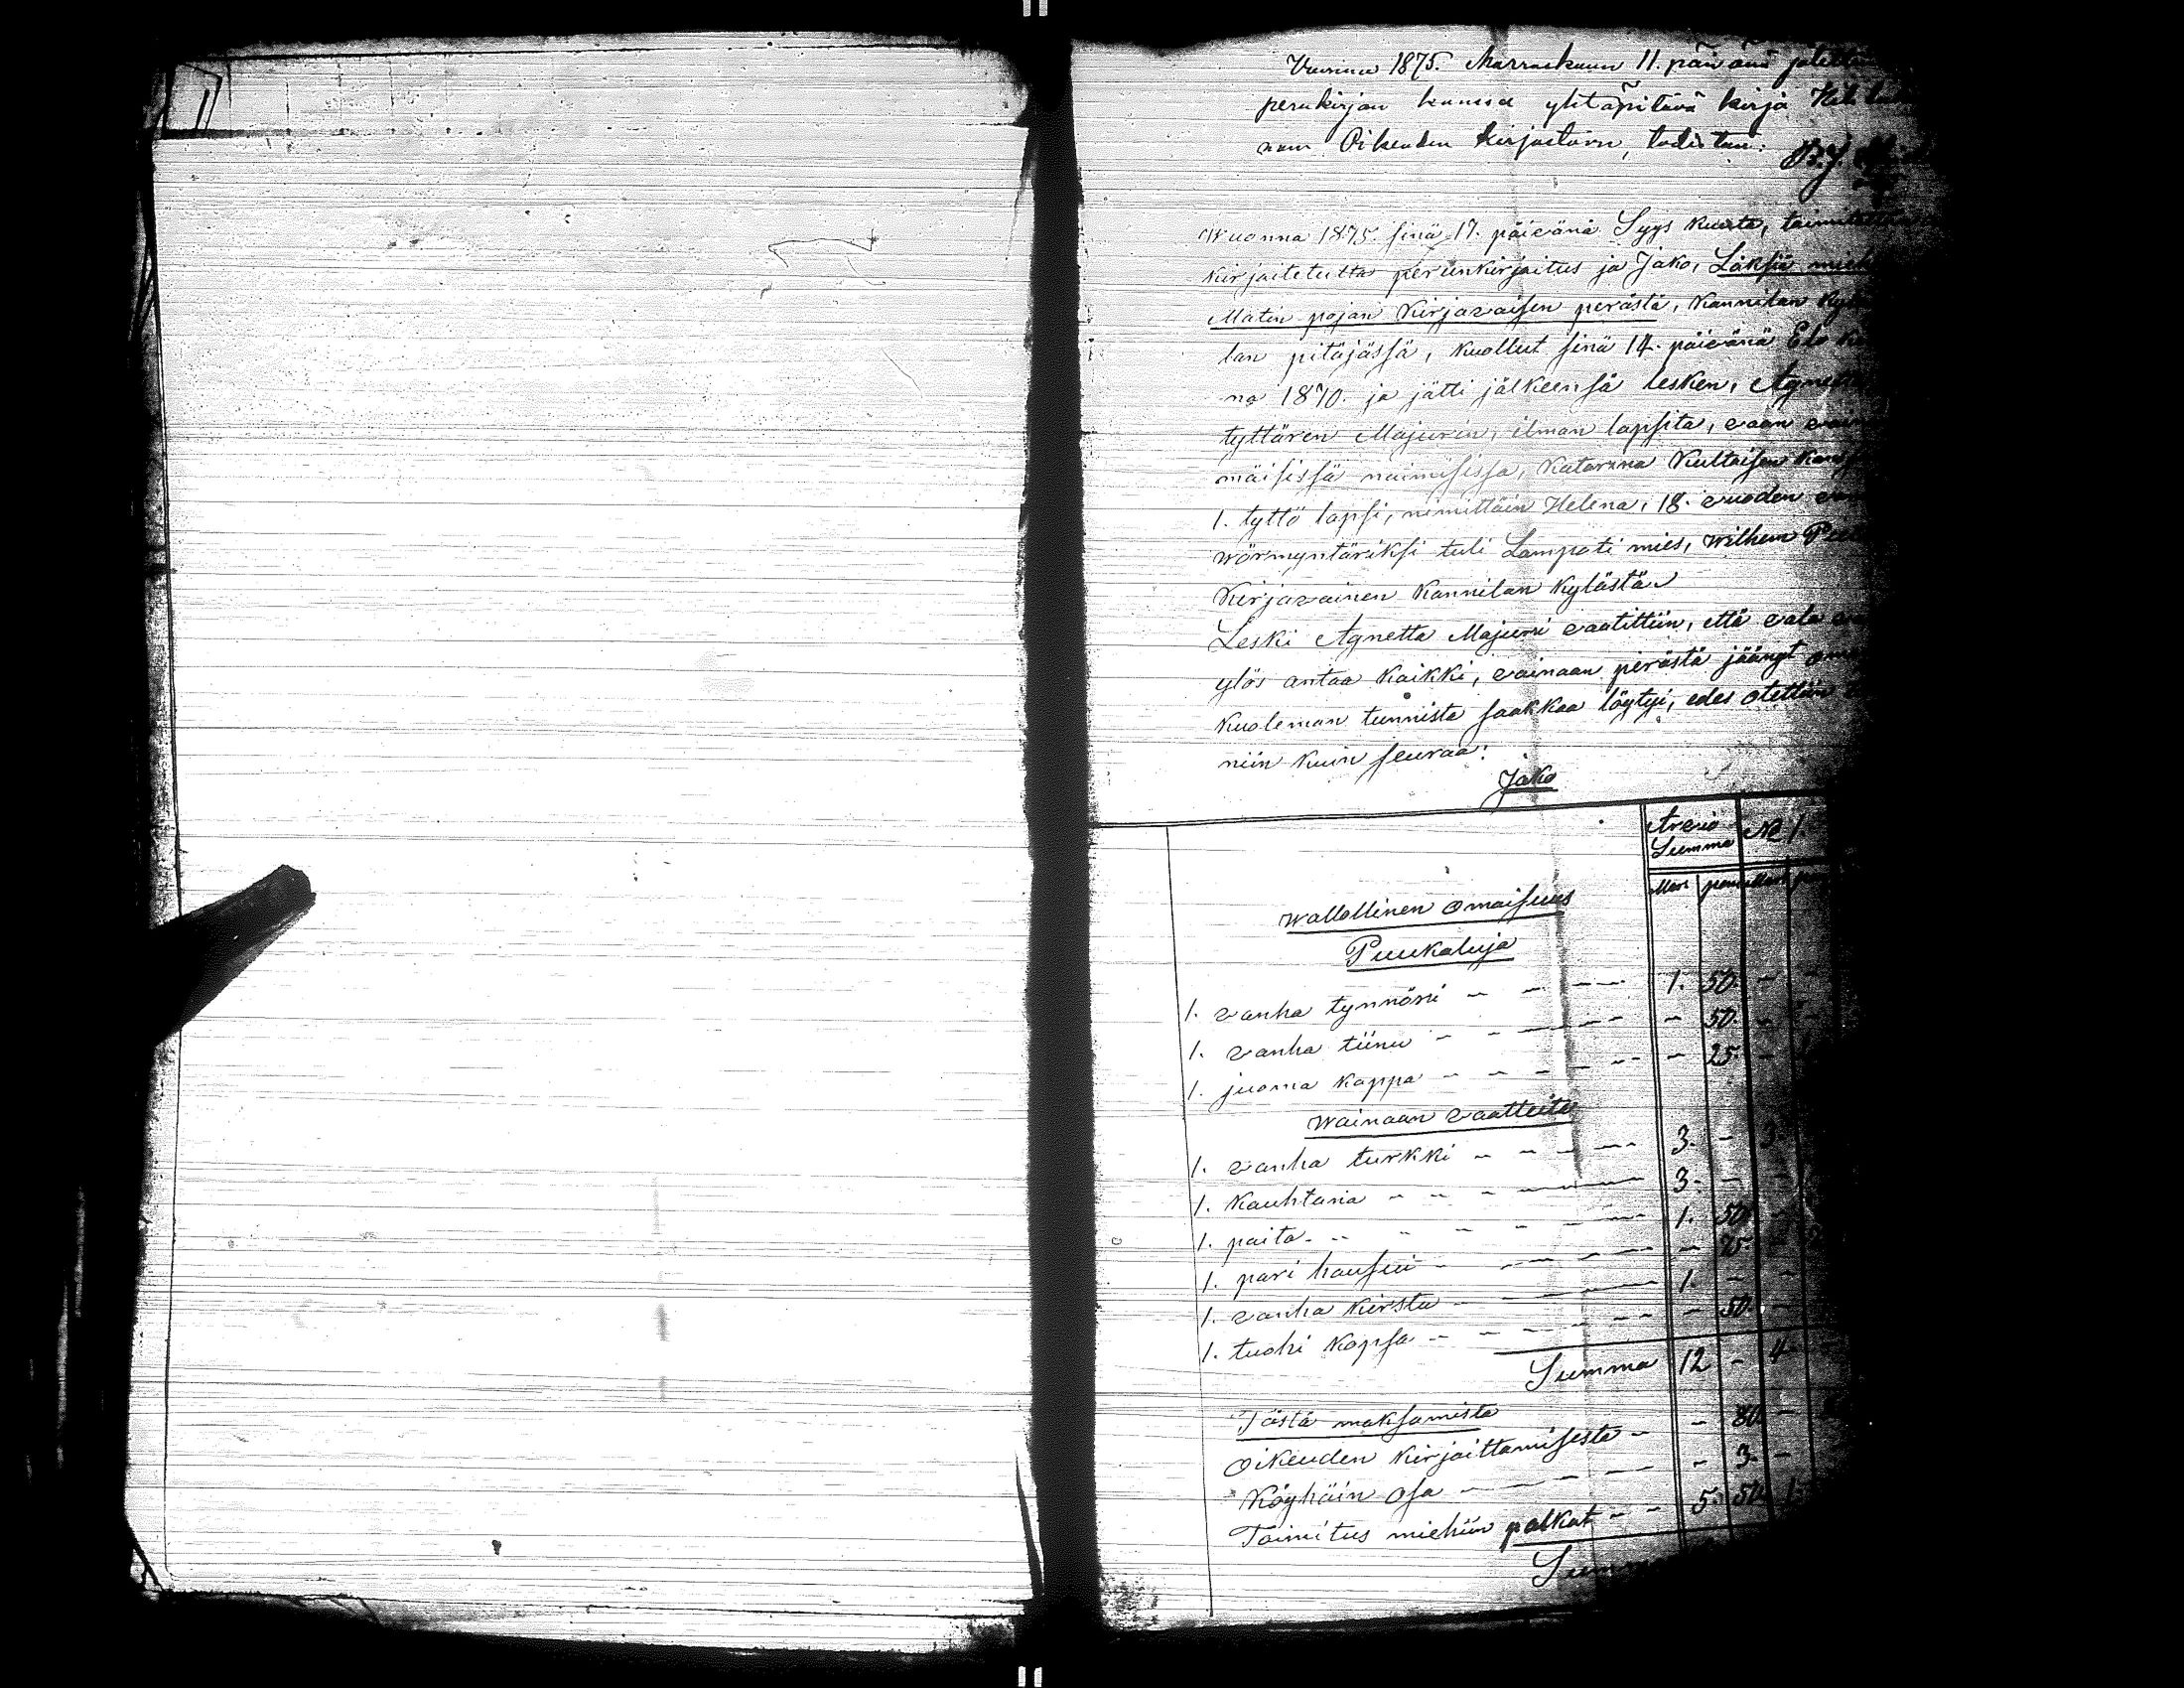 Vuonna 1875. Marraskuun 11. päivänä jätettiin
perukirjan kanssa yhtäpitävä kirja
nan Oikeuden Kirjastoon, todistan:
Wuonna 1875. sinä 17. päivänä Syys kuuta, toimitettiin
kirjoitetutta perunkirjoitus ja Jako, Läksiä
Matin pojan Kirjavaisen perästä, Kannilan
lan pitäjässä, kuollut sinä 14. päivänä Elo
na 1870. ja jätti jälkeensä lesken, Agnetta
tyttären Majurin, ilman lapsita, vaan
mäisissä naimisissa, Katarina Kultaisen
1. tyttö lapsi, nimittäin Helena, 18. vuoden
wörmyntäriksi tuli Lampoti mies, Wilhem
Kirjavainen Kannilan Kylästä
Leski Agnetta Majuri vaatittiin, että vala
ylös antaa Kaikki, vainaan perästä jäängt
Kuoleman tunnista saakkaa löytyi, edes otettiin
niin kuin seuraa:
Jako
Arvio
Summa
No 1.
Mar penni
Wallollinen Omaisuus
Puukaluja
1. vanha tynnöri - - - 1. 50. - -
1. vanha tiinu - - - - 50. - -
1. juoma kappa - - - - 25. -
Wainaan vaatteita
1. vanha turkki - - - 3. - 3.
1. Kauhtana - - - 3. - -
1. paita - - - 1. 50.
1. pari housui - - - - 25.
1. vanha Kirstu - - - 1. - -
1. tuohi Kopsa - - - - 50. -
Summa 12 - 4
Tästä maksamista
Oikeuden Kirjoittamisesta - - 80. -
Köyhäin Osa - - - - 3. -
Toimitus miehiin palkat - - 5. 50. 1.